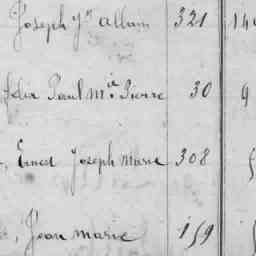 Joseph Jn allain 321 14
Paul Mie Pierre 30 9
Ernest Joseph Marie 308
Jean marie 159